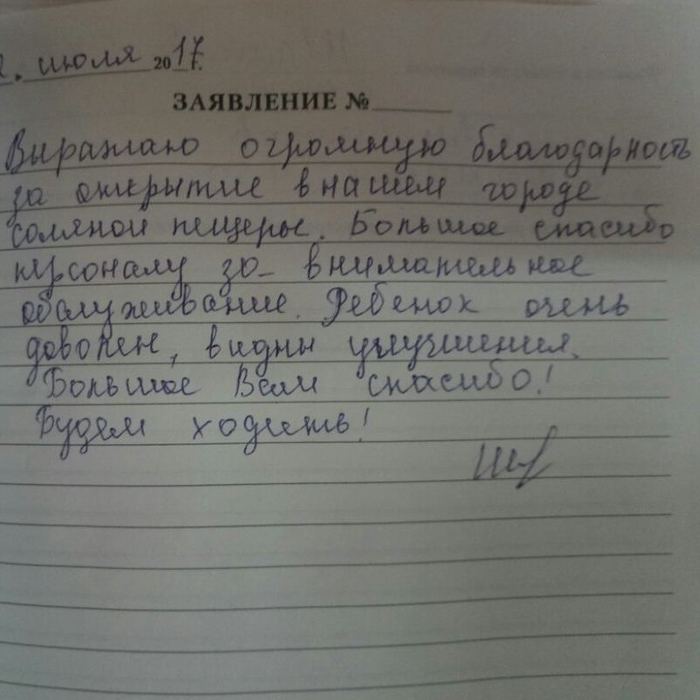 июля 2017г.
ЗАЯВЛЕНИЕ №
Выражаю огромную благодарность
за открытие в нашем городе
соляной пещеры. Большое спасибо
персоналу за внимательное
обслуживание. Ребенок очень
доволен, видны улучшения.
Большое Всем спасибо!
Будем ходить!